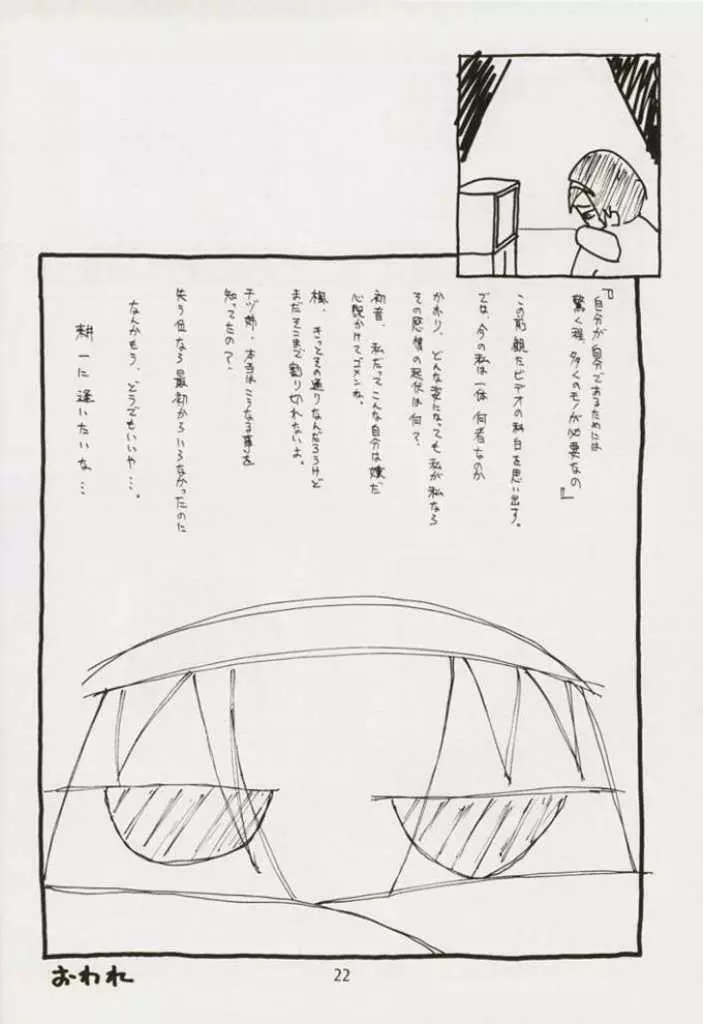 『自分が自分であるためには
驚く程、多くのモノが必要なの』
この前観たビデオの科白を思い出す。
では、今の私は一体何者なのか
かおり、どんな姿になっても私が私なら
その感情の起伏は何?
初音、私だってこんな自分は嫌だ
心配かけてゴメンね。
楓、きってその通りなんだろうけど
まだそこまで割り切れないよ。
チヅ姉、本当はこうなる事を
知ってたの?、
失う位なら最初からいらなかったのに
なんかもう、どうでもいいや…。
耕一に逢いたいな…
おわれ
22